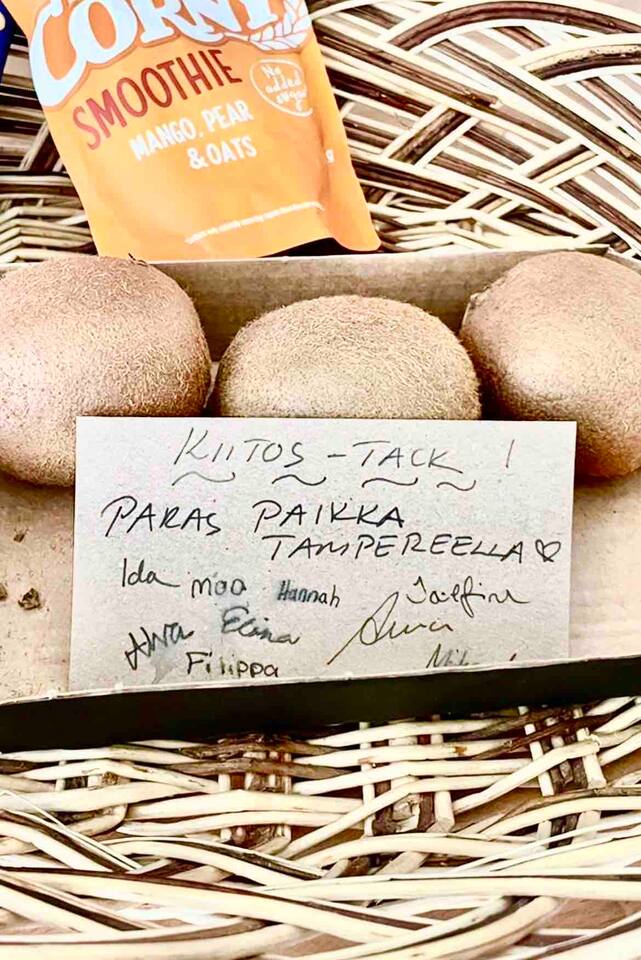 CORNY
SMOOTHIE
No added sugar
MANGO, PEAR
& OATS
KIITOS - TACK !
PARAS PAIKKA
TAMPEREELLA ♡
Ida moa Hannah
Elina
Filippa